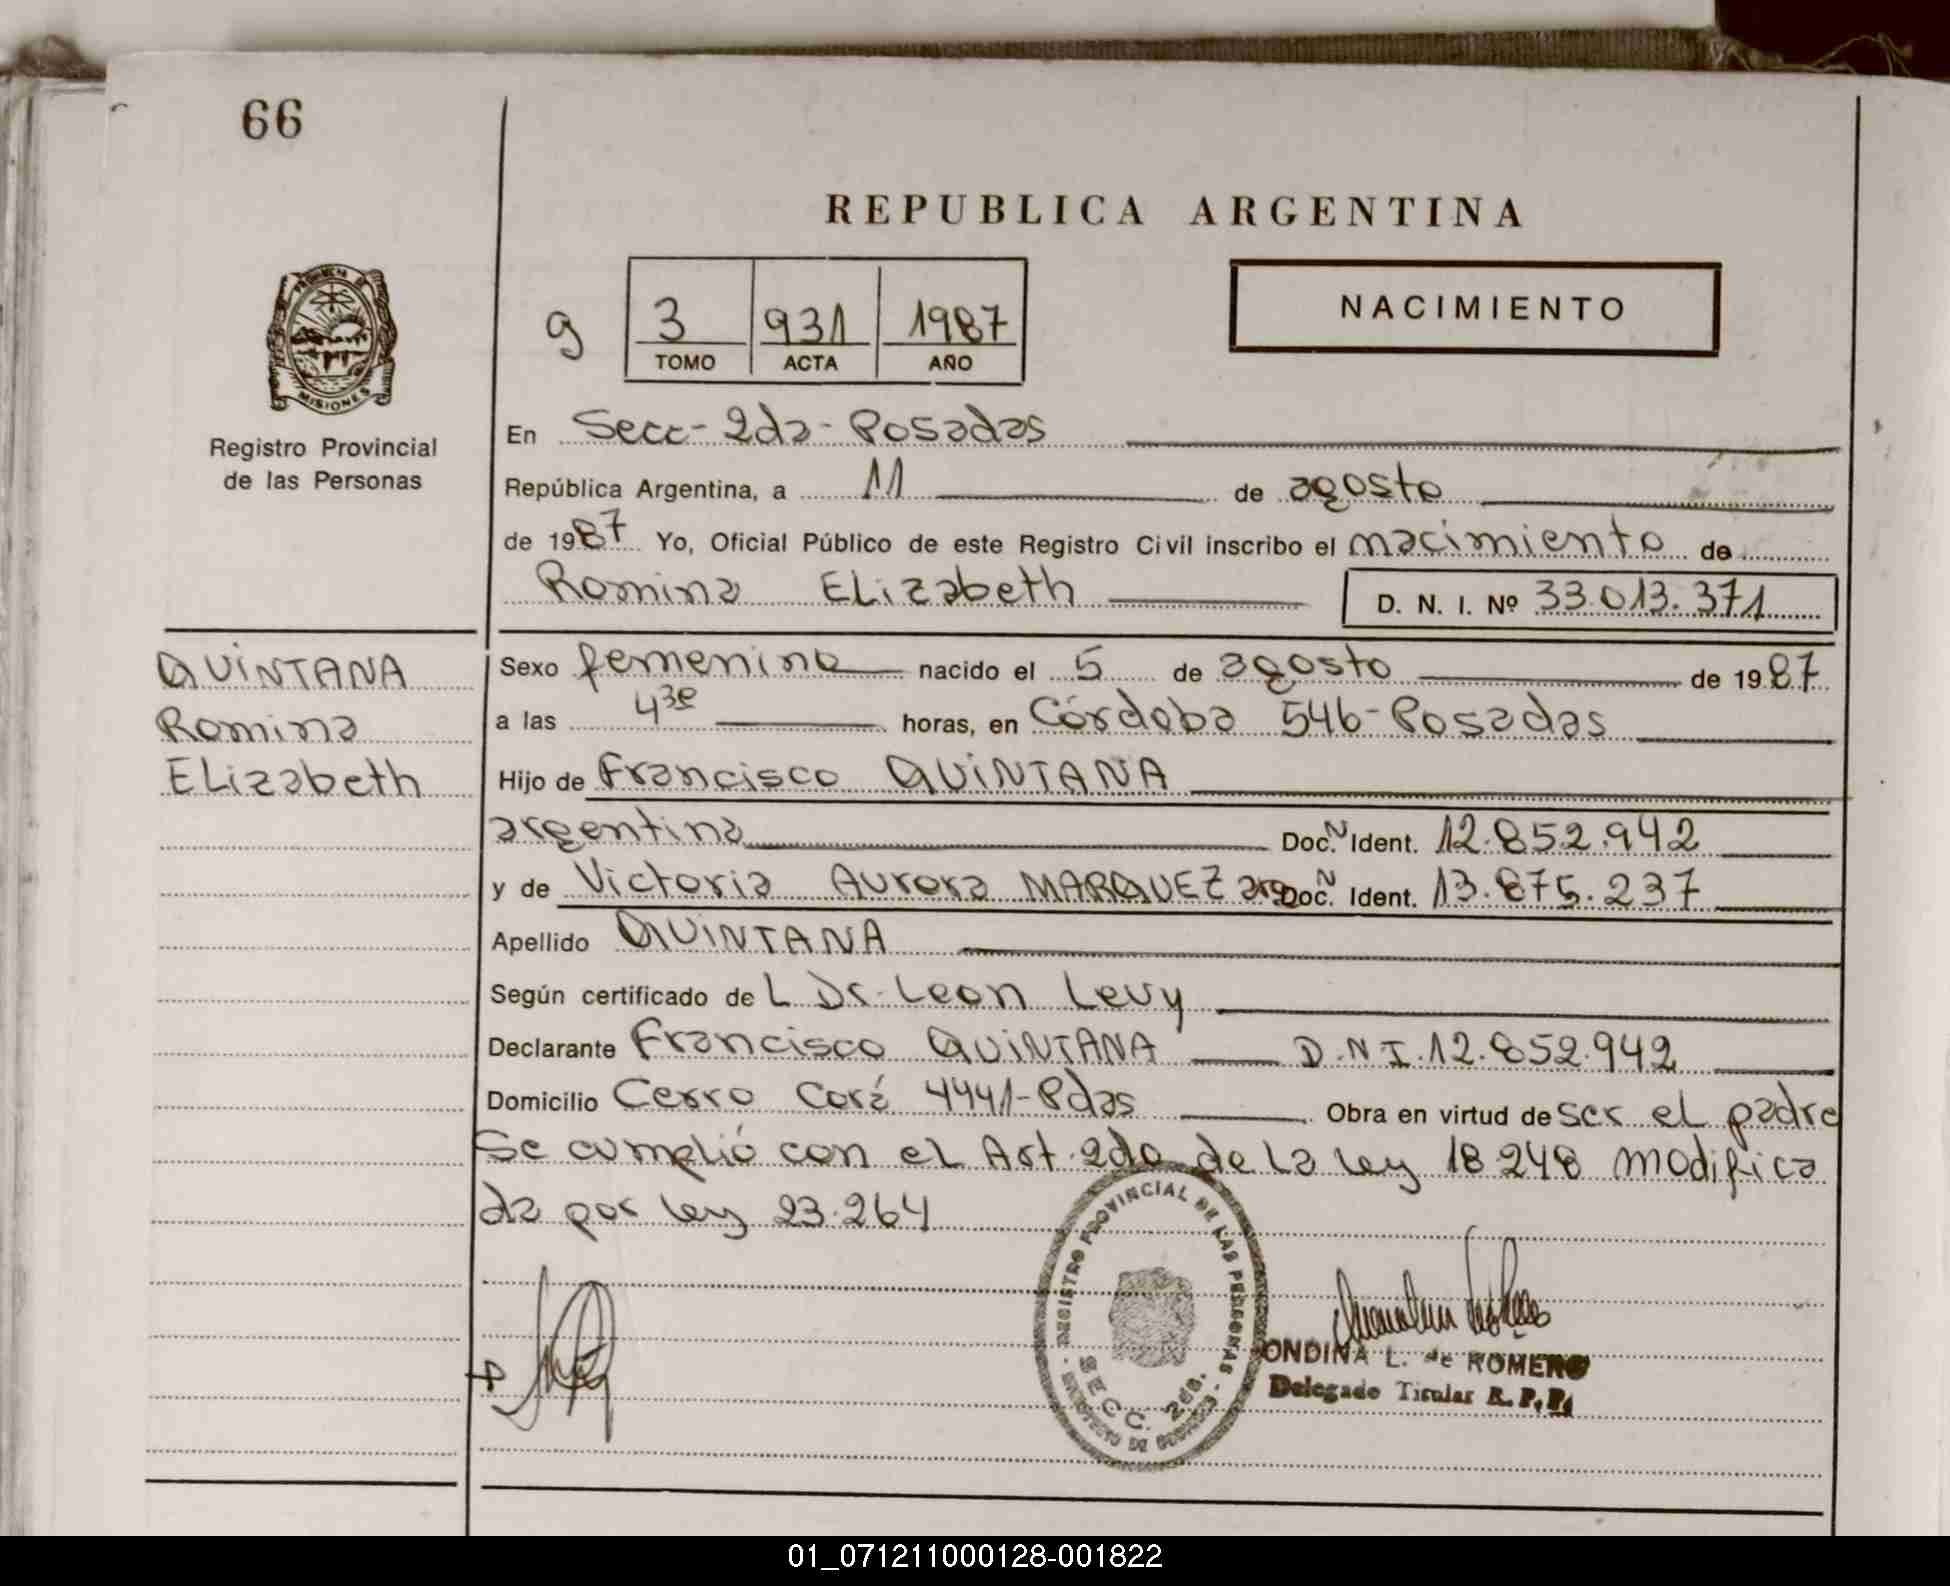 66
REPUBLICA ARGENTINA
PROVINCIA DE
MISIONES
Registro Provincial
de las Personas
9
3 931 1987
TOMO ACTA AÑO
NACIMIENTO
En Secc-2da-Posadas
República Argentina, a 11 de agosto
de 1987 Yo, Oficial Público de este Registro Civil inscribo el nacimiento de
Romina Elizabeth D. N. I. Nº 33.013.371
QUINTANA
Romina
Elizabeth
Sexo femenino nacido el 5 de agosto de 1987
a las 4 30 horas, en Córdoba 546-Posadas
Hijo de Francisco QUINTANA
argentina Doc. N Ident. 12.852.942
y de Victoria Aurora MARQUEZ arg Doc. N Ident. 13.875.237
Apellido QUINTANA
Según certificado de L Dr. Leon Levy
Declarante Francisco QUINTANA D.N.I. 12.852.942
Domicilio Cerro Corá 4441-Pdas Obra en virtud de ser el padre
Se cumplió con el Art. 2do de la ley 18 248 modifica
da por ley 23.264
REGISTRO PROVINCIAL DE LAS PERSONAS
SECC. 2da.
ONDINA L. de ROMERO
Delegado Titular R. P. P.
01_071211000128-001822